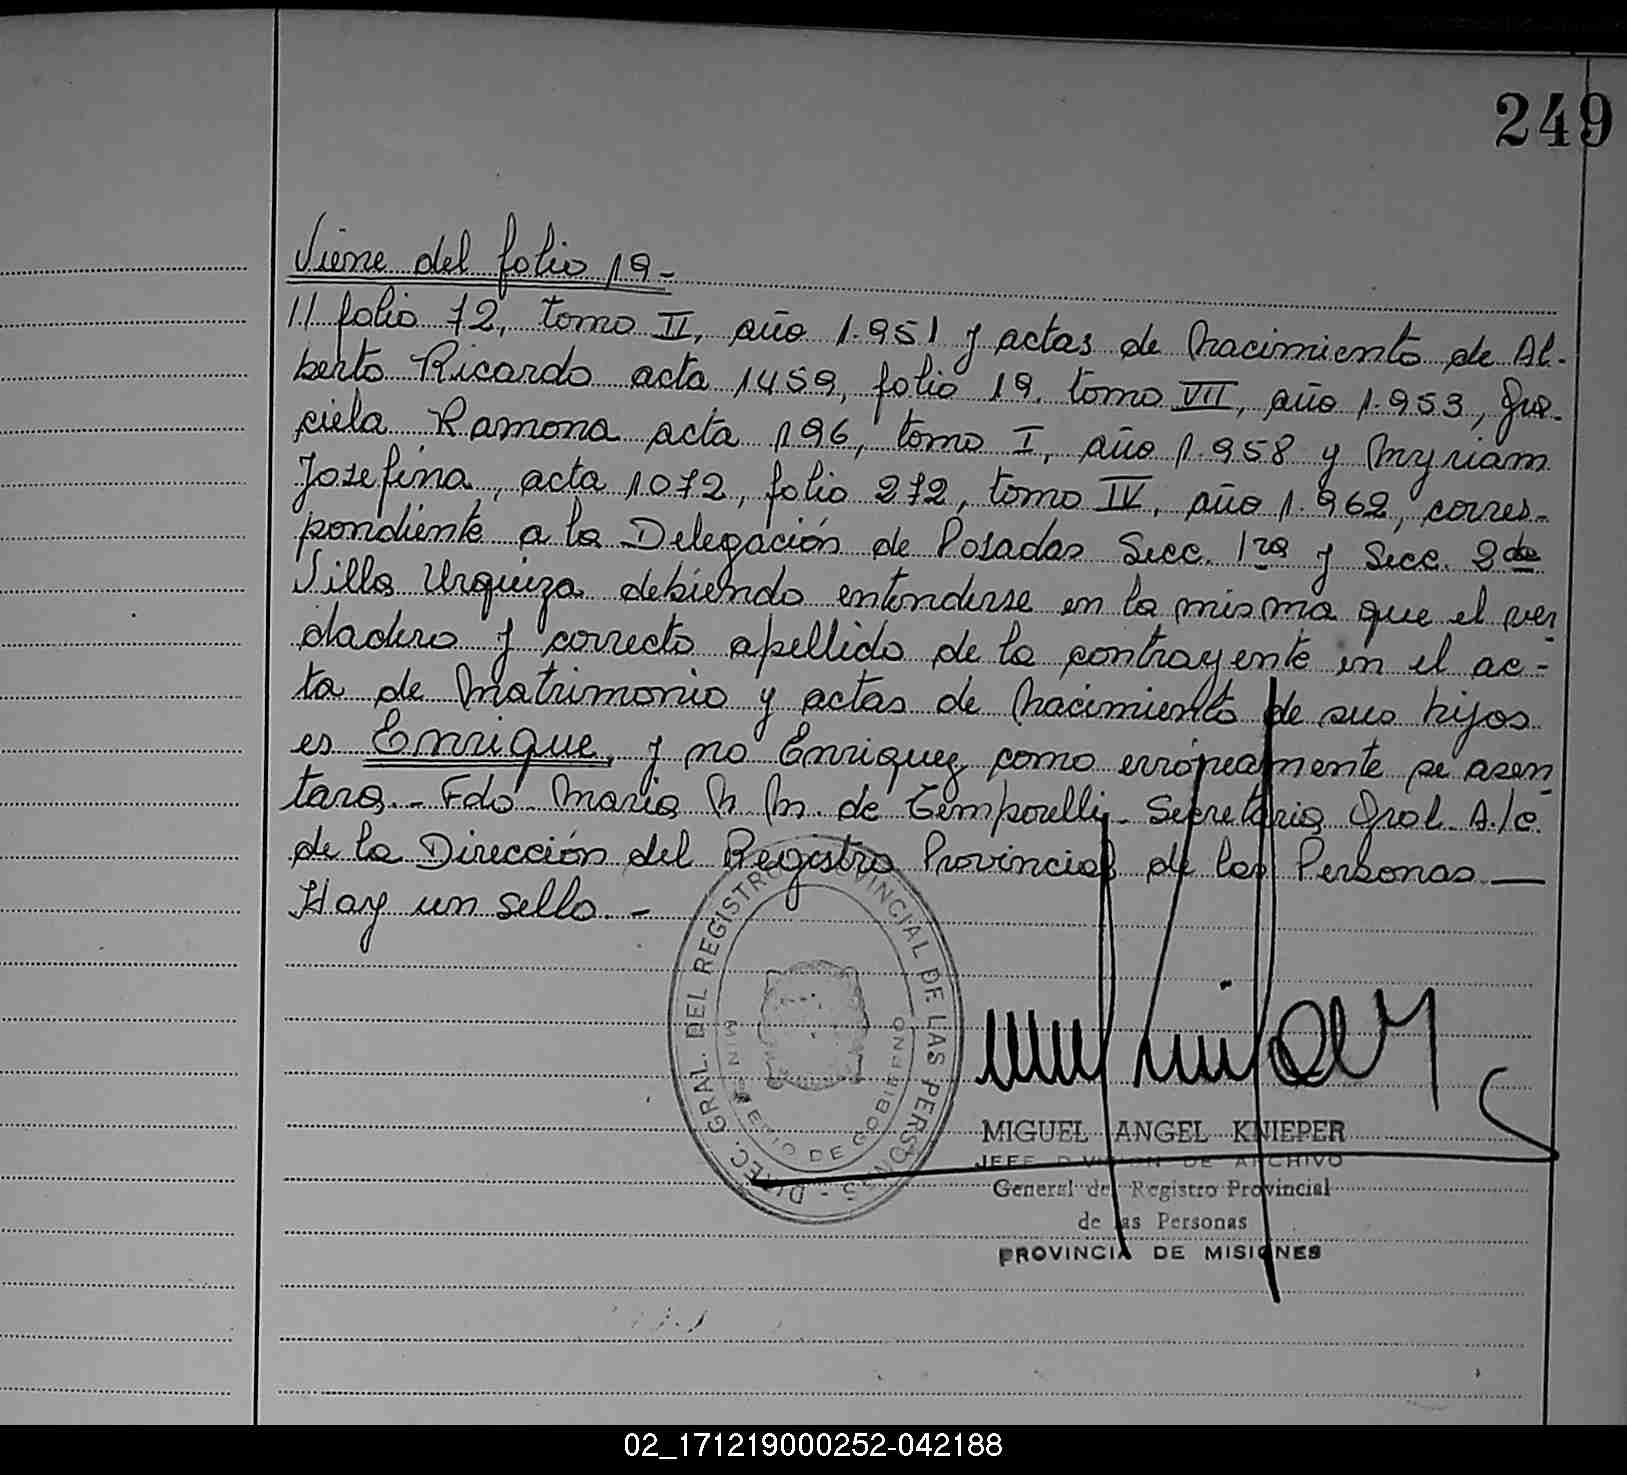 249
Viene del folio 19-
// folio 72, tomo II, año 1.951 y actas de Nacimiento de Al-
berto Ricardo acta 1459, folio 19. tomo VII, año 1.953, Gra-
ciela Ramona acta 196, tomo I, año 1.958 y Myriam
Josefina, acta 1072, folio 272, tomo IV, año 1.962, corres-
pondiente a la Delegación de Posadas Secc. 1ra y Secc. 2da
Villa Urquiza debiendo entenderse en la misma que el ver-
dadero y correcto apellido de la contrayente en el ac-
ta de Matrimonio y actas de Nacimiento de sus hijos
es Enrique, y no Enriquez como erróneamente se asen-
tara.- Fdo Maria N. M. de Temporelli- Secretaria Gral A./C.
de la Dirección del Registro Provincial de las Personas —
Hay un sello.-
DIREC. GRAL. DEL REGISTRO PROVINCIAL DE LAS PERSONAS -
MINISTERIO DE GOBIERNO
MIGUEL ANGEL KNIEPER
JEFE DIVISION DE ARCHIVO
General del Registro Provincial
de las Personas
PROVINCIA DE MISIONES
02_171219000252-042188